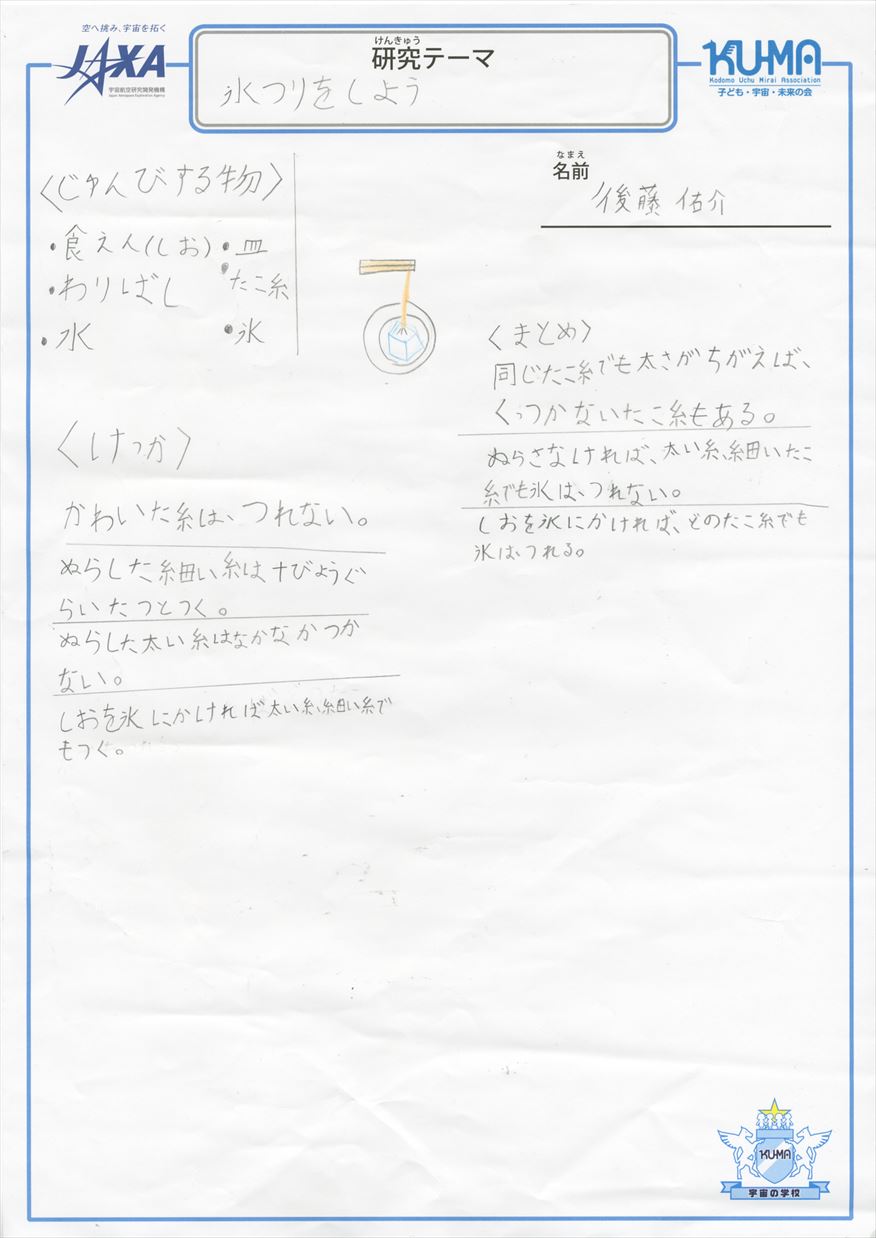 空へ挑み、宇宙を拓く
JAXA
宇宙航空研究開発機構
Japan Aerospace Exploration Agency
けんきゅう
研究テーマ
氷つりをしよう
KU-MA
Kodomo Uchu Mirai Association
子ども・宇宙・未来の会
なまえ
名前
後藤 佑介
〈じゅんびする物〉
・食えん(しお)
・わりばし
・水
・皿
・たこ糸
・氷
〈けっか〉
かわいた糸は、つれない。
ぬらした細い糸は十びょうぐ
らいたつとつく。
ぬらした太い糸はなかなかつか
ない。
しおを氷にかければ太い糸、細い糸で
もつく。
〈まとめ〉
同じたこ糸でも太さがちがえば、
くっつかないたこ糸もある。
ぬらさなければ、太い糸、細いたこ
糸でも氷は、つれない。
しおを氷にかければ、どのたこ糸でも
氷は、つれる。
KU-MA
宇宙の学校